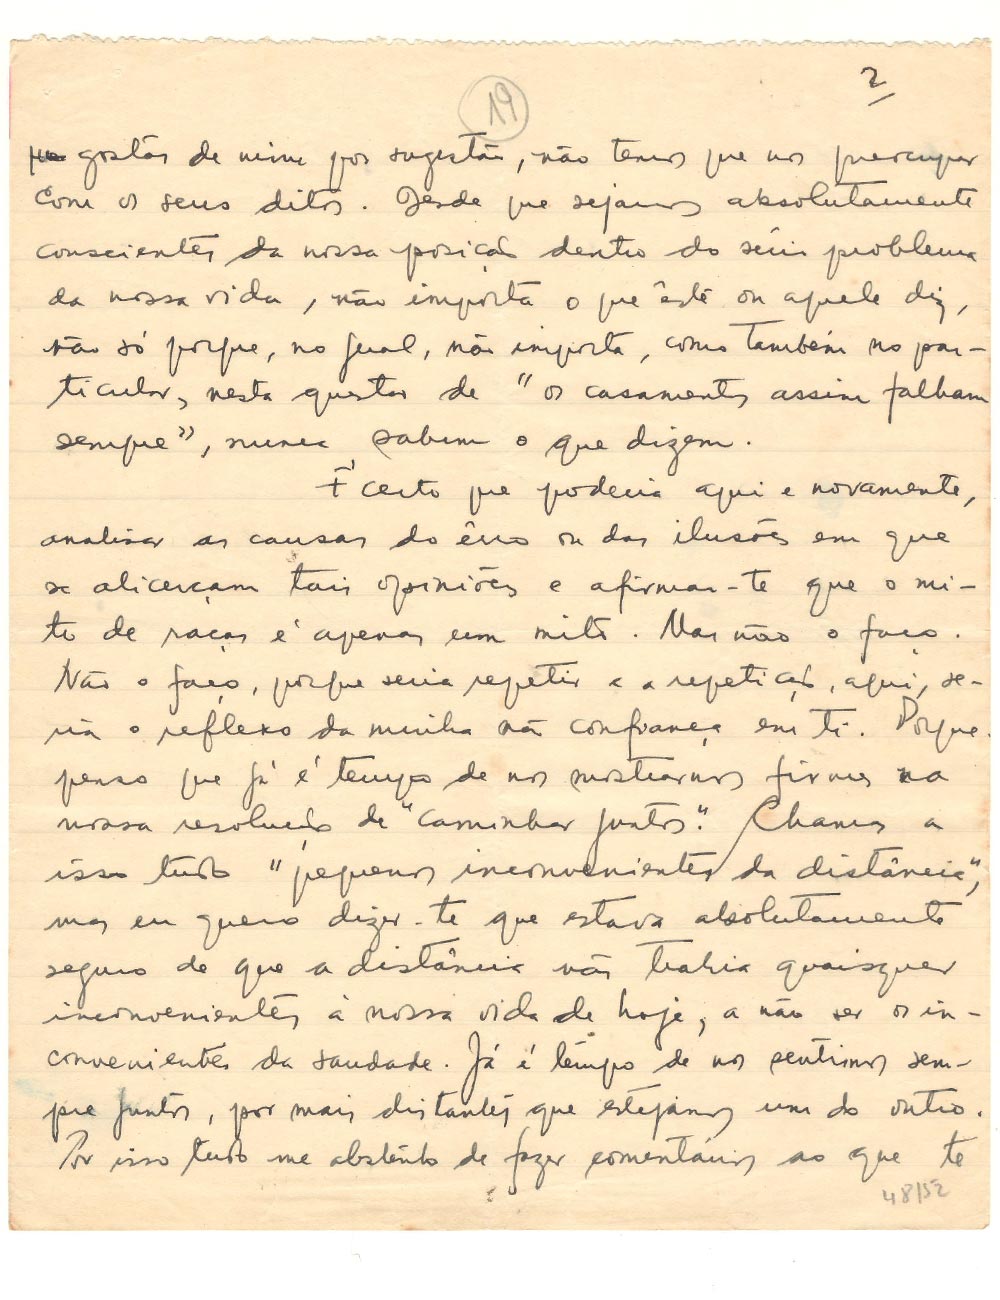 2
19
gostas de mim por sugestão, não temos que nos preocupar
com os seus ditos. Desde que sejamos absolutamente
conscientes da nossa posição dentro do sério problema
da nossa vida, não importa o que êste ou aquele diz,
não só porque, no geral, não importa, como também no par-
ticular, nesta questão de "os casamentos assim falham
sempre", nunca sabem o que dizem.
É certo que poderia aqui e novamente,
analisar as causas do êrro ou das ilusões em que
se alicerçam tais opiniões e afirmar-te que o mi-
to de raças é apenas um mito. Mas não o faço.
Não o faço, porque seria repetir e a repetição, aqui, se-
ria o reflexo da minha não confiança em ti. Porque
penso que já é tempo de nos mostrarmos firmes na
nossa resolução de "caminhar juntos". Chamas a
isso tudo "pequenos inconvenientes da distância",
mas eu quero dizer-te que estava absolutamente
seguro de que a distância não trazia quaisquer
inconvenientes à nossa vida de hoje, a não ser os in-
convenientes da saudade. Já é tempo de nos sentirmos sem-
pre juntos, por mais distantes que estejamos um do outro.
Por isso tudo me abstenho de fazer comentários ao que te
48/52